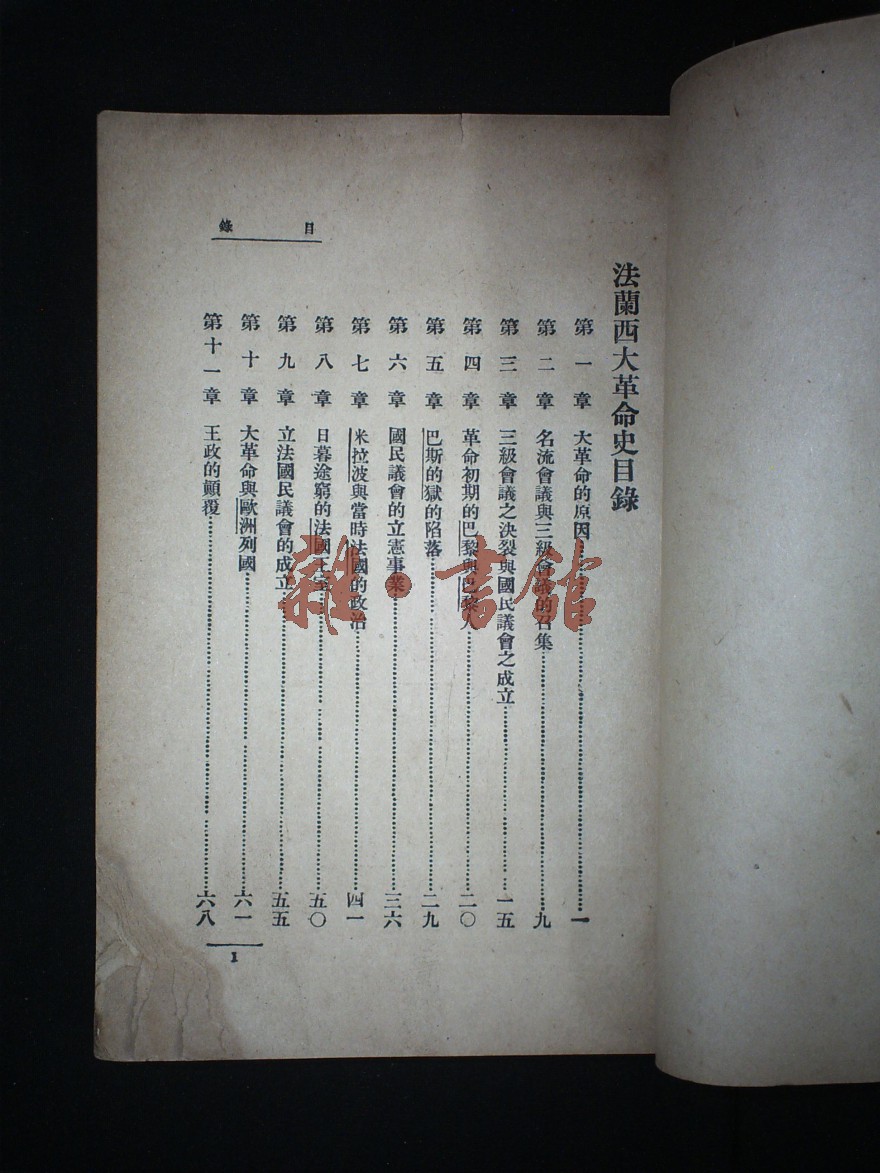 目錄
法蘭西大革命史目錄
第一章 大革命的原因……一
第二章 名流會議與三級會議的召集……九
第三章 三級會議之決裂與國民議會之成立……一五
第四章 革命初期的巴黎與巴黎人……二〇
第五章 巴斯的獄的陷落……二九
第六章 國民議會的立憲事業……三六
第七章 米拉波與當時法國的政治……四一
第八章 日暮途窮的法國王室……五〇
第九章 立法國民議會的成立……五五
第十章 大革命與歐洲列國……六一
第十一章 王政的顛覆……六八
1
雜·書館